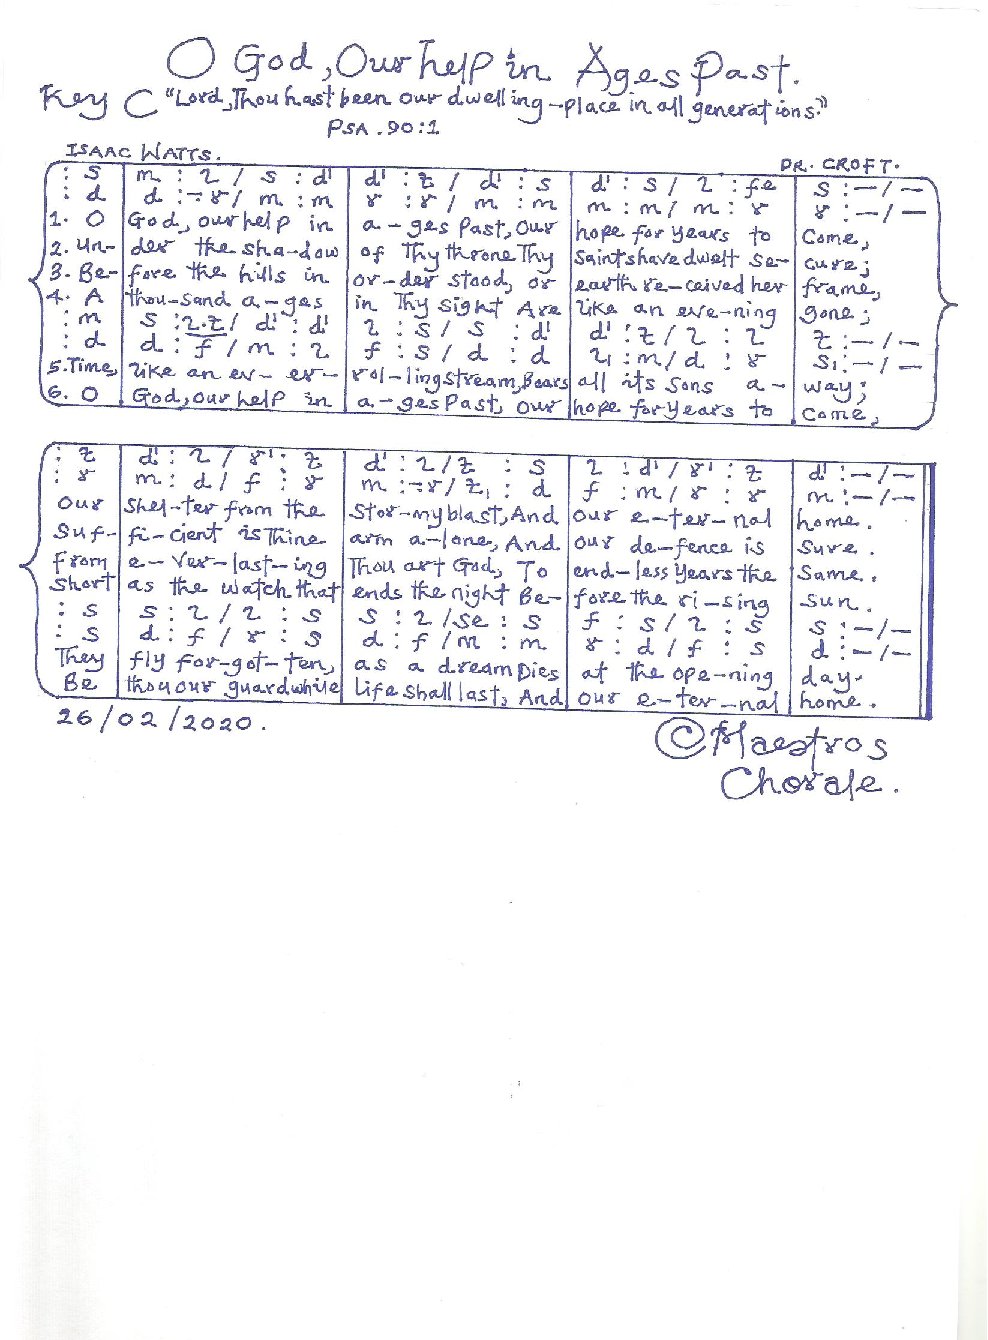 O God, Our help in Ages Past.
Key C "Lord, Thou hast been our dwelling-place in all generations."
PSA. 90:1
ISAAC WATTS. DR. CROFT.
: s | m : l / s : d' | d' : t / d' : s | d' : s / l : fe | s : - / -
: d | d : -.r / m : m | r : r / m : m | m : m / m : r | r : - / -
1. O | God, our help in | a-ges Past, Our | hope for years to | Come,
2. Un- | der the sha-dow | of Thy throne Thy | Saints have dwelt se- | cure;
3. Be- | fore the hills in | or-der stood, or | earth re-ceived her | frame,
4. A | thou-sand a-ges | in Thy sight Are | like an eve-ning | gone;
: m | s : l.t / d' : d' | l : s / s : d' | d' : t / l : l | t : - / -
: d | d : f / m : l | f : s / d : d | l₁ : m / d : r | s₁ : - / -
5. Time, | like an ev- er- | rol-ling stream, Bears | all its sons a- | way;
6. O | God, our help in | a-ges Past, our | hope for years to | Come,
: t | d' : l / r' : t | d' : l / t : s | l : d' / r' : t | d' : - / -
: r | m : d / f : r | m : -.r / t₁ : d | f : m / r : r | m : - / -
Our | Shel-ter from the | Stor-my blast, And | our e-ter-nal | home.
Suf- | fi-cient is Thine | arm a-lone, And | our de-fence is | Sure.
From | e-ver-last-ing | Thou art God, To | end-less years the | Same.
Short | as the watch that | ends the night Be- | fore the ri-sing | Sun.
: s | s : l / l : s | s : l / se : s | f : s / l : s | s : - / -
: s | d : f / r : s | d : f / m : m | r : d / f : s | d : - / -
They | fly for-got-ten, | as a dream Dies | at the ope-ning | day.
Be | thou our guard while | Life Shall last, And | our e-ter-nal | home.
26/02/2020.
©Maestros
Chorale.